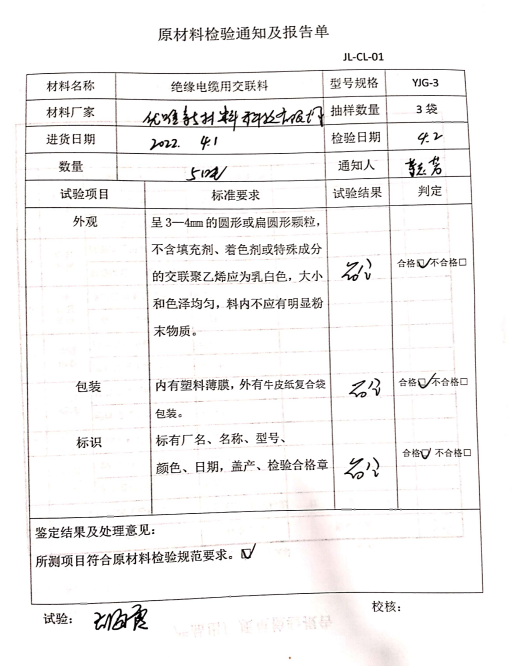 原材料检验通知及报告单
JL-CL-01
材料名称 绝缘电缆用交联料 型号规格 YJG-3
材料厂家 新材料科技有限公司 抽样数量 3 袋
进货日期 2022. 4.1 检验日期 4.2
数量 通知人
试验项目 标准要求 试验结果 判定
外观 呈 3—4mm 的圆形或扁圆形颗粒，
不含填充剂、着色剂或特殊成分
的交联聚乙烯应为乳白色，大小 符合 合格☑不合格□
和色泽均匀，料内不应有明显粉
末物质。
包装 内有塑料薄膜，外有牛皮纸复合袋 符合 合格☑不合格□
包装。
标识 标有厂名、名称、型号、 合格☑ 不合格□
颜色、日期，盖产、检验合格章 符合
鉴定结果及处理意见：
所测项目符合原材料检验规范要求。☑
试验： 校核：